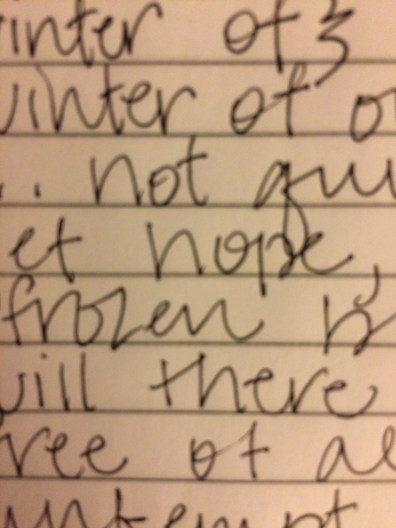 inter of
winter of o
.. not qu
et hope,
frozen
will there
ree of al
ntempt